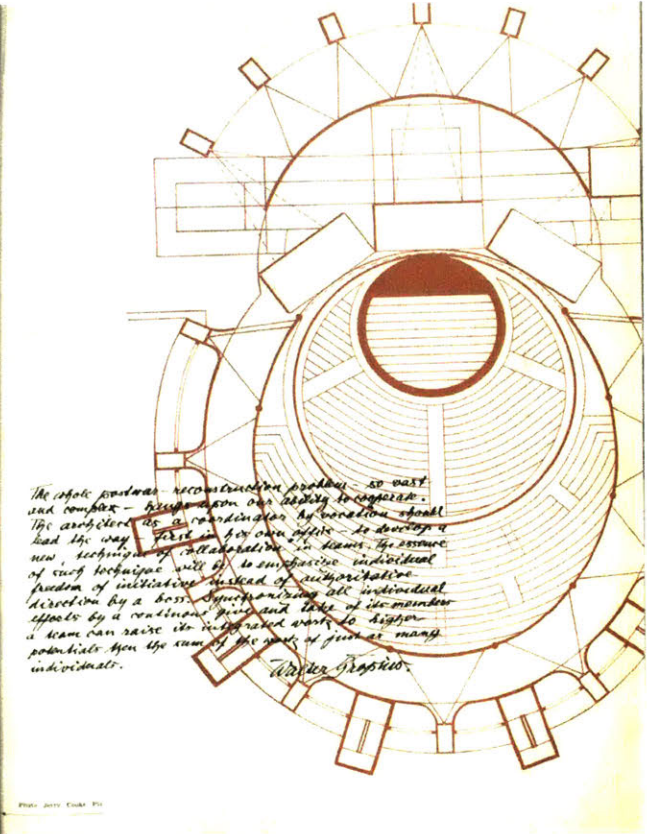 The whole postwar reconstruction problem – so vast
and complex – hangs upon our ability to cooperate.
The architect as a coordinator by vocation should
lead the way – first in his own office – to develop a
new "technique of collaboration in teams". The essence
of such technique will be to emphasise individual
freedom of initiative instead of authoritative
direction by a boss. Synchronizing all individual
efforts by a continuous give and take of its members
a team can raise its integrated work to higher
potentials then the sum of the work of just as many
individuals.
Walter Gropius.
Photo Jerry Cooke Pix